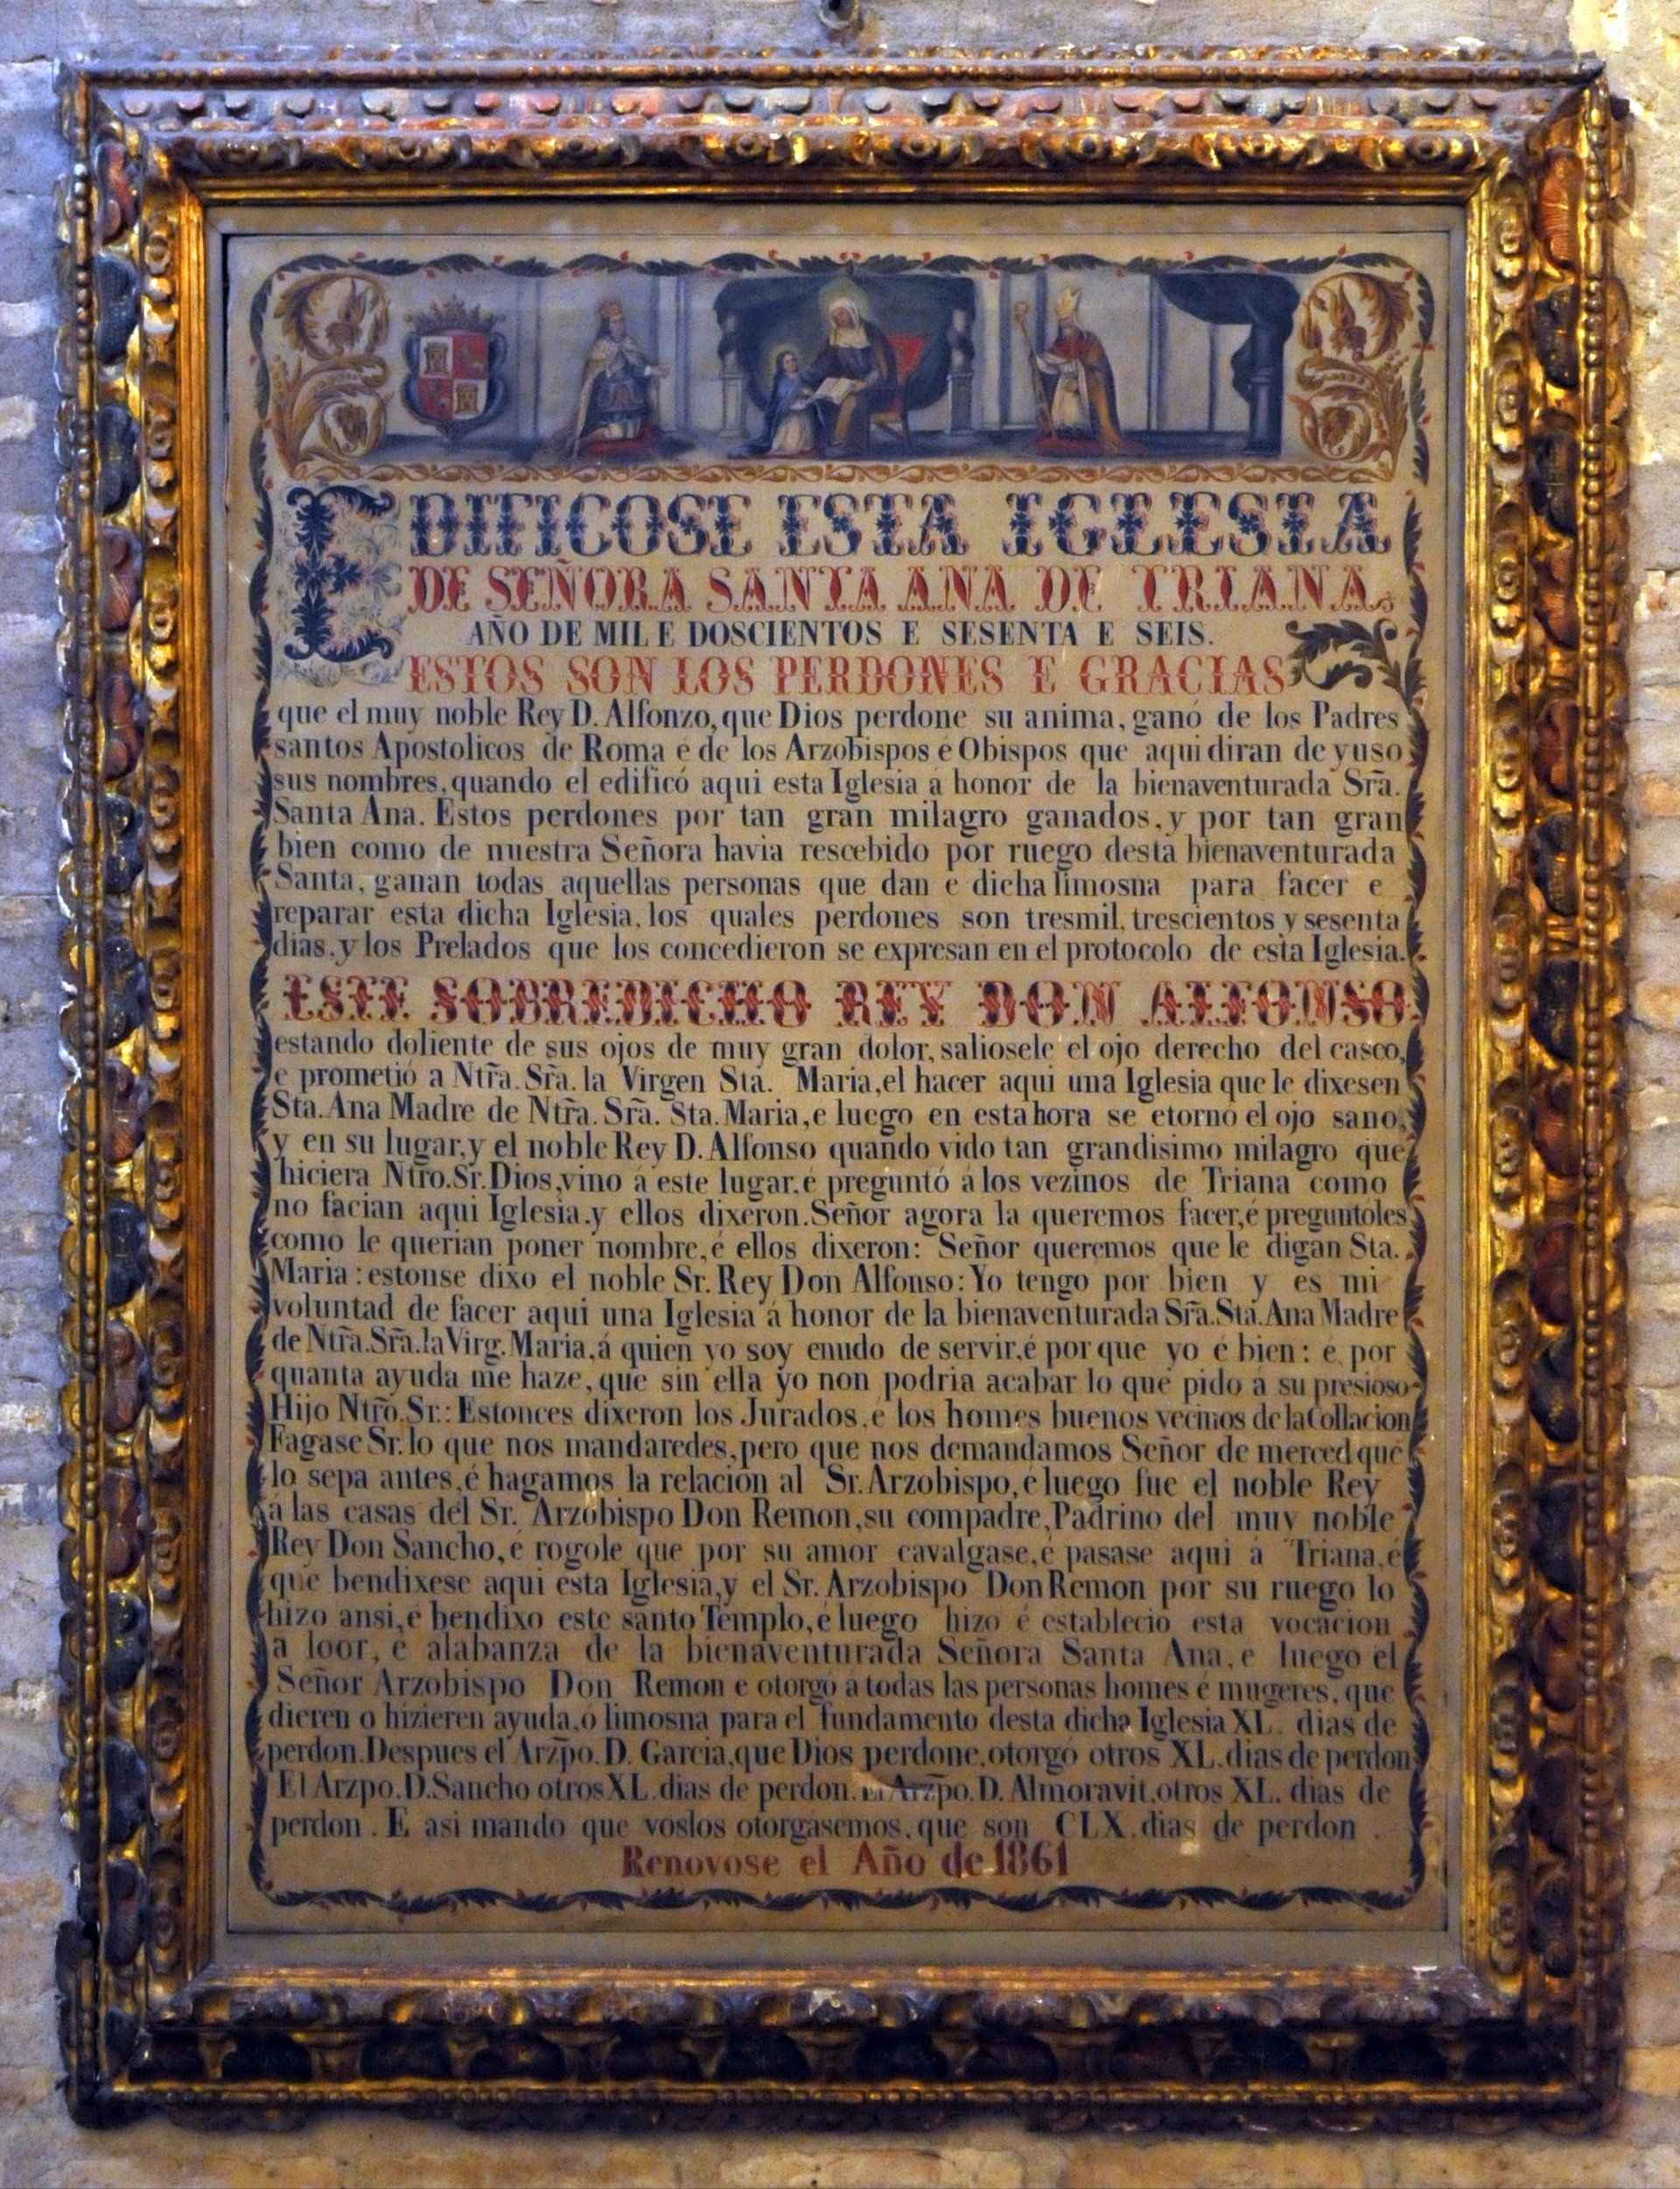 EDIFICOSE ESTA IGLESIA
DE SEÑORA SANTA ANA DE TRIANA,
AÑO DE MIL E DOSCIENTOS E SESENTA E SEIS.
ESTOS SON LOS PERDONES E GRACIAS
que el muy noble Rey D. Alfonzo, que Dios perdone su anima, ganó de los Padres
santos Apostolicos de Roma é de los Arzobispos é Obispos que aqui diran de yuso
sus nombres, quando el edificó aqui esta Iglesia á honor de la bienaventurada Sr̃a.
Santa Ana. Estos perdones por tan gran milagro ganados, y por tan gran
bien como de nuestra Señora havia rescebido por ruego desta bienaventurada
Santa, ganan todas aquellas personas que dan e dicha limosna para facer e
reparar esta dicha Iglesia, los quales perdones son tresmil, trescientos y sesenta
dias, y los Prelados que los concedieron se expresan en el protocolo de esta Iglesia.
ESTE SOBREDICHO REY DON ALFONSO
estando doliente de sus ojos de muy gran dolor, saliosele el ojo derecho del casco,
e prometió a Ntr̃a. Sr̃a. la Virgen Sta. Maria, el hacer aqui una Iglesia que le dixesen
Sta. Ana Madre de Ntr̃a. Sr̃a. Sta. Maria, e luego en esta hora se etornó el ojo sano,
y en su lugar, y el noble Rey D. Alfonso quando vido tan grandisimo milagro que
hiciera Ntro. Sr. Dios, vino á este lugar, é preguntó á los vezinos de Triana como
no facian aqui Iglesia, y ellos dixeron. Señor agora la queremos facer, é preguntóles
como le querian poner nombre, é ellos dixeron: Señor queremos que le digan Sta.
Maria: estonse dixo el noble Sr. Rey Don Alfonso: Yo tengo por bien y es mi
voluntad de facer aqui una Iglesia á honor de la bienaventurada Sr̃a. Sta. Ana Madre
de Ntr̃a. Sr̃a. la Virg. Maria, á quien yo soy enudo de servir, é por que yo é bien: é por
quanta ayuda me haze, que sin ella yo non podria acabar lo que pido a su presioso
Hijo Ntr̃o. Sr.: Estonces dixeron los Jurados, é los homes buenos vecinos de la Collacion
Fagase Sr. lo que nos mandaredes, pero que nos demandamos Señor de merced que
lo sepa antes, é hagamos la relacion al Sr. Arzobispo, é luego fue el noble Rey
á las casas del Sr. Arzobispo Don Remon, su compadre, Padrino del muy noble
Rey Don Sancho, é rogole que por su amor cavalgase, é pasase aqui á Triana, é
que bendixese aqui esta Iglesia, y el Sr. Arzobispo Don Remon por su ruego lo
hizo ansi, é bendixo este santo Templo, é luego hizo é estableció esta vocacion
a loor, é alabanza de la bienaventurada Señora Santa Ana, e luego el
Señor Arzobispo Don Remon e otorgó a todas las personas homes é mugeres, que
dieren o hizieren ayuda, ó limosna para el fundamento desta dicha Iglesia XL. dias de
perdon. Despues el Arzp̃o. D. Garcia, que Dios perdone, otorgó otros XL. dias de perdon
El Arzpo. D. Sancho otros XL. dias de perdon. El Arzp̃o. D. Almoravit, otros XL. dias de
perdon. E asi mando que voslos otorgasemos, que son CLX. dias de perdon.
Renovose el Año de 1861